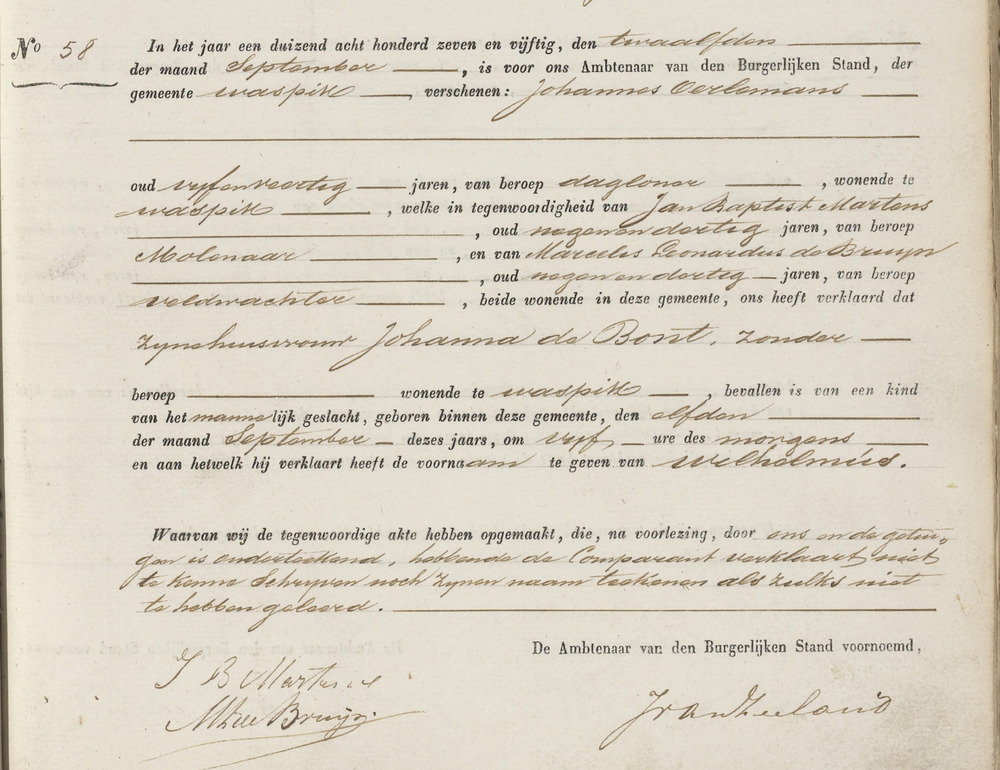 No 58
In het jaar een duizend acht honderd zeven en vijftig, den twaalfden
der maand September, is voor ons Ambtenaar van den Burgerlijken Stand, der
gemeente waspik, verschenen: Johannes Oerlemans
oud vyfenveertig jaren, van beroep dagloner, wonende te
waspik, welke in tegenwoordigheid van Jan Baptist Martens
, oud negenendertig jaren, van beroep
Molenaar, en van Marcelis Leonardus de Bruyn
, oud negenendertig jaren, van beroep
veldwachter, beide wonende in deze gemeente, ons heeft verklaard dat
zynehuisvrouw Johanna de Bont, zonder
beroep wonende te waspik, bevallen is van een kind
van het mannelijk geslacht, geboren binnen deze gemeente, den elfden
der maand September dezes jaars, om vyf ure des morgens
en aan hetwelk hij verklaart heeft de voornaam te geven van Wilhelmus.
Waarvan wij de tegenwoordige akte hebben opgemaakt, die, na voorlezing, door ons en de getui-
gen is onderteekend, hebbende de Comparant verklaart niet
te kenne Schryven noch zynen naam teekenen als zulks niet
te hebben geleerd.
De Ambtenaar van den Burgerlijken Stand voornoemd,
J B Martens
MLde Bruyn
JvanZeeland